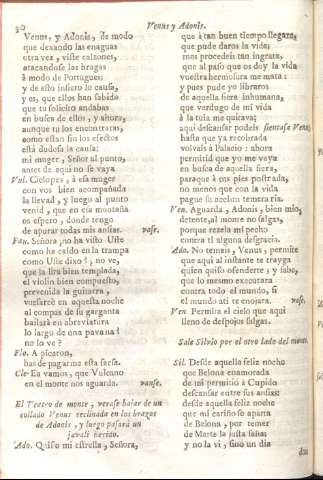 30
Venus y Adonis.
Venus, y Adonis, de modo
que dexando las enaguas
otra vez, viste calzones,
atacandose las bragas
à modo de Portugues;
y de esto infiero lo causa,
y es, que ellos han sabido
que tu solicito andabas
en busca de ellos, y ahora,
aunque tu los encontraras,
como estàn sin los efectos
està dudosa la causa:
mi muger, Señor al punto,
antes de aqui no se vaya
Vul. Ciclopes, à esa muger
con vos bien acompañada
la llevad, y luego al punto
venid, que en esa montaña
os espero, donde tengo
de apurar todas mis ansias. vase.
Fau. Señora, no ha visto Usté
como ha caído en la trampa
como Uste dixo? no ve,
que la lira bien templada,
el violin bien compuesto,
prevenida la guitarra,
vuesarcè en aquesta noche
al compas de su garganta
bailarà en abreviatura
lo largo de una pavana?
no lo ve?
Flo. A picaron,
has de pagarme esta farsa.
Cic- Ea vamos, que Vulcano
en el monte nos aguarda. vanse.
El Teatro de monte, verase baxar de un
collado Venus reclinada en los brazos
de Adonis, y luego pasarà un
javalì herido.
Ado. Quiso mi estrella, Señora,
que à tan buen tiempo llegara,
que pude daros la vida;
mas procedeis tan ingrata,
que al paso que os doy la vida
vuestra hermosura me mata:
y pues pude yo libraros
de aquella fiera inhumana,
que verdugo de mi vida
à la tuia me quitava;
aqui descansar podeis sientase Venus
hasta que ya recobrada
volvais à Palacio: ahora
permitid que yo me vaya
en busca de aquella fiera,
paraque à tus pies postrada,
no menos que con la vida
pague su accion temeraria.
Ven. Aguarda, Adonis, bien mio,
detente, al monte no salgas,
porque rezela mi pecho
contra ti alguna desgracia.
Ado. No temais, Venus, permite
que aqui al instante te trayga
quien quiso ofenderte; y sabe,
que lo mesmo executara
contra todo el mundo, si
el mundo ati te enojara. vase.
Ven Permita el cielo que aqui
lleno de despojos salgas.
Sale Silvio por el otro lado del monte.
Sil. Desde aquella feliz noche
que Belona enamorada
de mi permitiò à Cupido
descansar entre sus ansias:
desde aquella feliz noche
que mi cariño se aparta
de Belona, por temer
de Marte la justa saña:
y no la vi, sino un dia